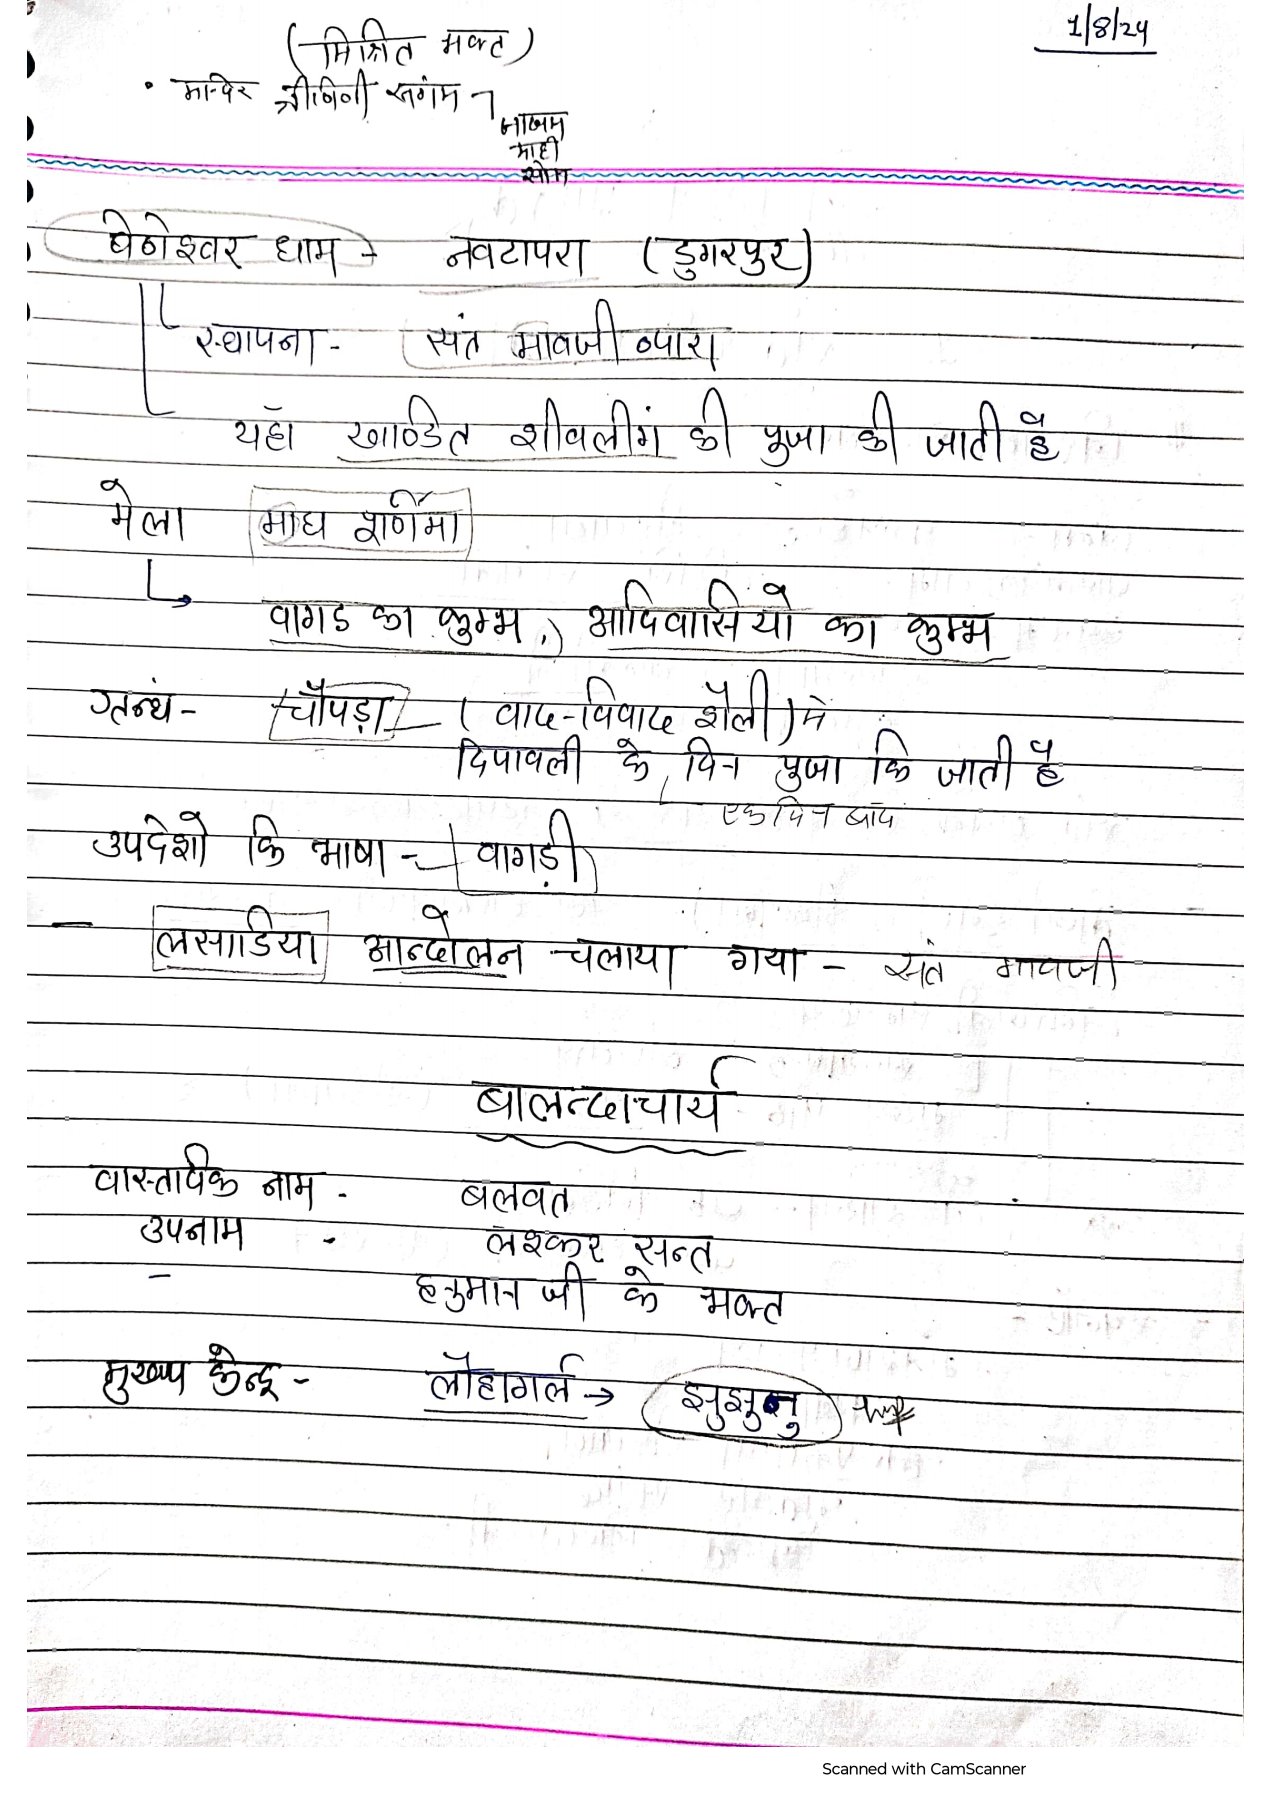 1/8/24
(मिश्रित भक्त)
• मन्दिर त्रीविणी संगम →
जाखम
माही
सोम
बेणेश्वर धाम → नवटापरा (डुगरपुर)
स्थापना - संत मावजी व्यास
यहाँ खाण्डित शीवलींग की पुजा की जाती है
मेला माघ पूर्णिमा
वागड का कुम्भ, आदिवासियो का कुम्भ
ग्रन्थ - चौपड़ा (वाद-विवाद शैली) मे
दिपावली के दिन पुजा कि जाती है
एक दिन बाद
उपदेशो कि भाषा - वागड़ी
- लसाडिया आन्दोलन चलाया गया - संत मावजी
बालन्दाचार्य
वास्तविक नाम - बलवत
उपनाम - लश्कर सन्त
- हनुमान जी के भक्त
मुख्य केन्द्र - लौहागर्ल → झुझुनु
Scanned with CamScanner